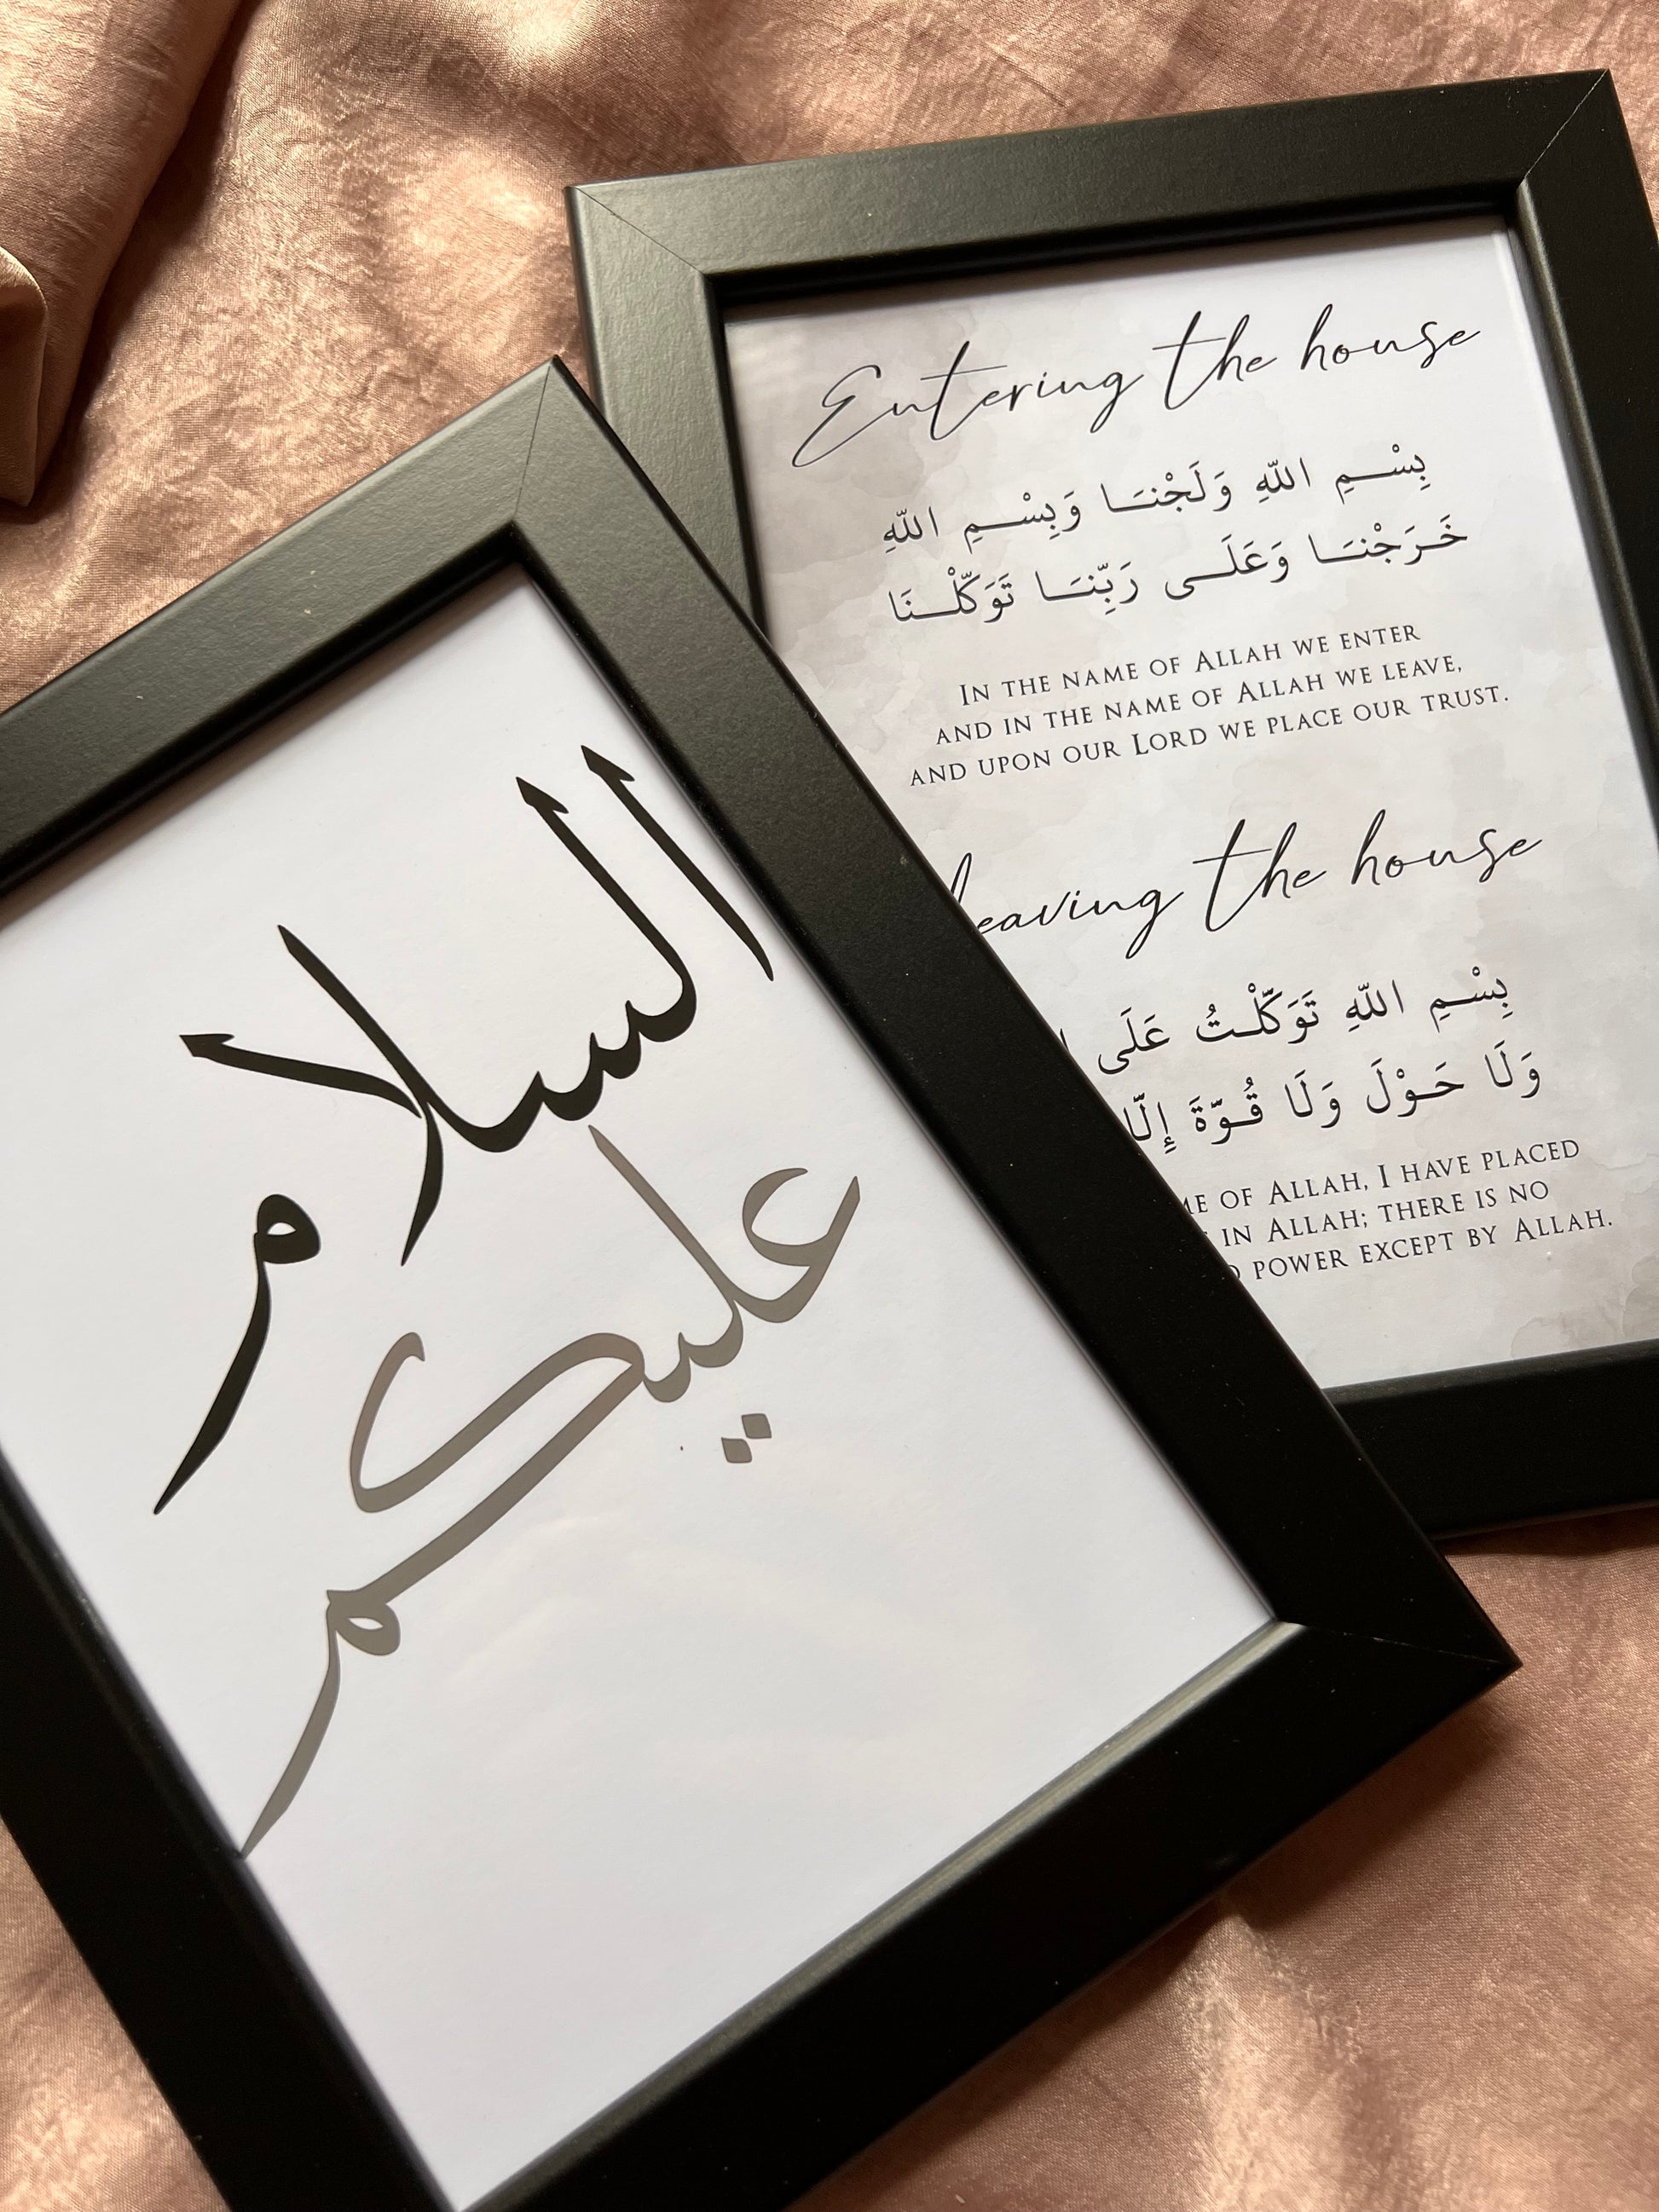 السلام
عليكم
Entering the house
بِسْمِ اللّٰهِ وَلَجْنَا وَبِسْمِ اللّٰهِ
خَرَجْنَا وَعَلَى رَبِّنَا تَوَكَّلْنَا
In the name of Allah we enter
and in the name of Allah we leave,
and upon our Lord we place our trust.
Leaving the house
بِسْمِ اللّٰهِ تَوَكَّلْتُ عَلَى
وَلَا حَوْلَ وَلَا قُوَّةَ إِلَّا
of Allah, I have placed
in Allah; there is no
power except by Allah.